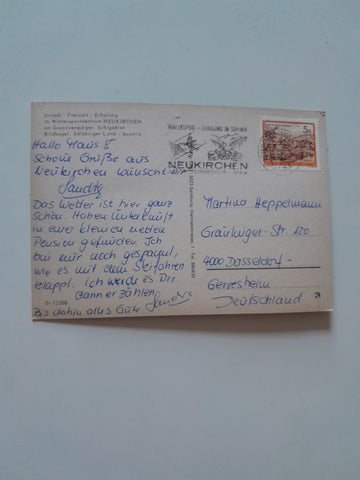 Urlaub - Freizeit - Erholung
im Wintersportzentrum NEUKIRCHEN
am Grossvenediger Schigebiet
Wildkogel Salzburger Land Austria
Hallo Maus
Schöne Grüße aus
Neukirchen wünscht Dir
Sandra
Das Wetter ist hier ganz
schön. Haben Unterkunft
in eine kleinen netten
Pension gefunden. Ich
bin nur noch gespannt,
wie es mit dem Skifahren
klappt. Ich werde es Dir
dann erzählen.
Bis dahin alles Gute
Sl 23308
WINTERSPORT - ERHOLUNG IM SOMMER
NEUKIRCHEN
5
Martina Heppelmann
Gräulinger-Str 120
4000 Düsseldorf-
Gerresheim
Deutschland